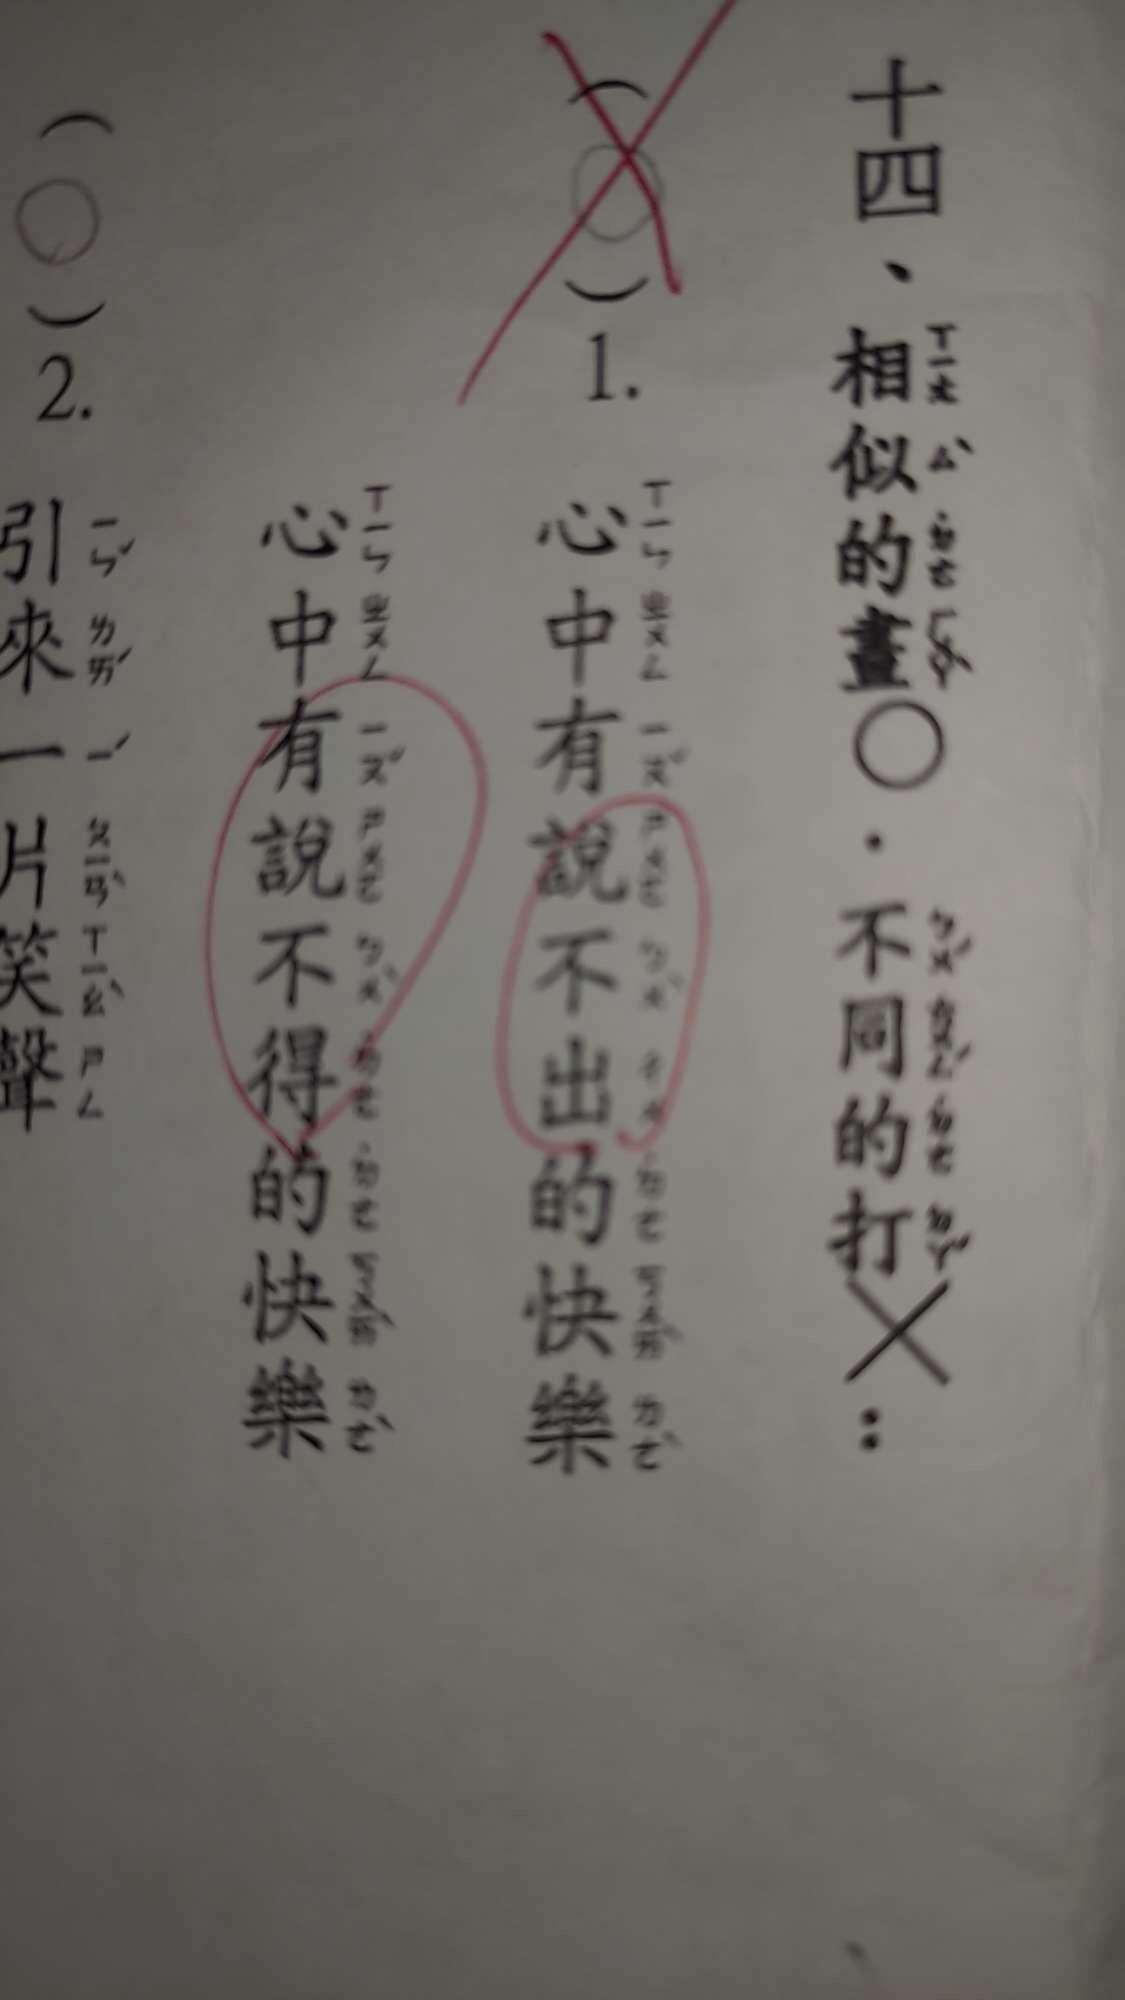 十四、相似的畫○．不同的打╳：
（○）1. 心中有說不出的快樂
心中有說不得的快樂
（○）2. 引來一片笑聲